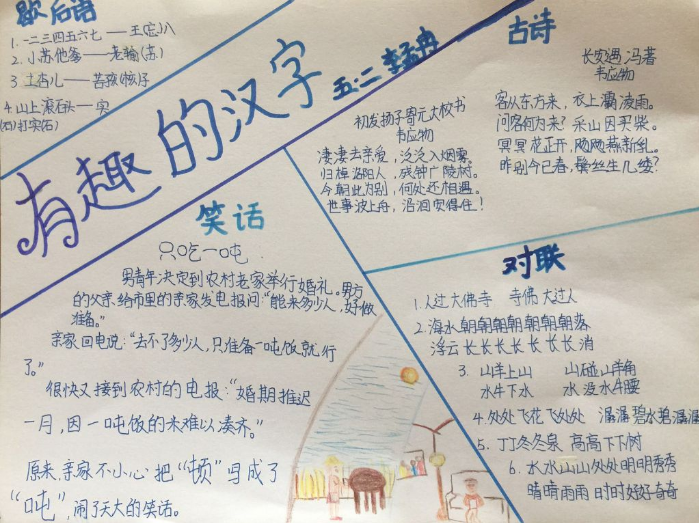 歇后语
1.一二三四五六七——王(忘)八
2.小苏他爹——老输(苏)
3.土杏儿——苦孩(核)子
4.山上滚石头——实
(石)打实(石)
有趣的汉字
五.二 李孟冉
古诗
长安遇冯著
韦应物
客从东方来，衣上灞凌雨。
问客何为来？采山因买柴。
冥冥花正开，飏飏燕新乳。
昨别今已春，鬓丝生几缕？
初发扬子寄元大校书
韦应物
凄凄去亲爱，泛泛入烟雾。
归棹洛阳人，残钟广陵树。
今朝此为别，何处还相遇。
世事波上舟，沿洄安得住！
笑话
只吃一吨
男青年决定到农村老家举行婚礼。男方
的父亲给市里的亲家发电报问“能来多少人，好做
准备。”
亲家回电说：“去不了多少人，只准备一吨饭就行
了。”
很快又接到农村的电报：“婚期推迟
一月，因一吨饭的米难以凑齐。”
原来，亲家不小心把“顿”写成了
“吨”，闹了天大的笑话。
对联
1.人过大佛寺 寺佛大过人
2.海水朝朝朝朝朝朝朝落
浮云长长长长长长长消
3.山羊上山 山碰山羊角
水牛下水 水没水牛腰
4.处处飞花飞处处 潺潺碧水碧潺潺
5.丁丁冬冬泉 高高下下树
6.水水山山处处明明秀秀
晴晴雨雨时时好好奇奇